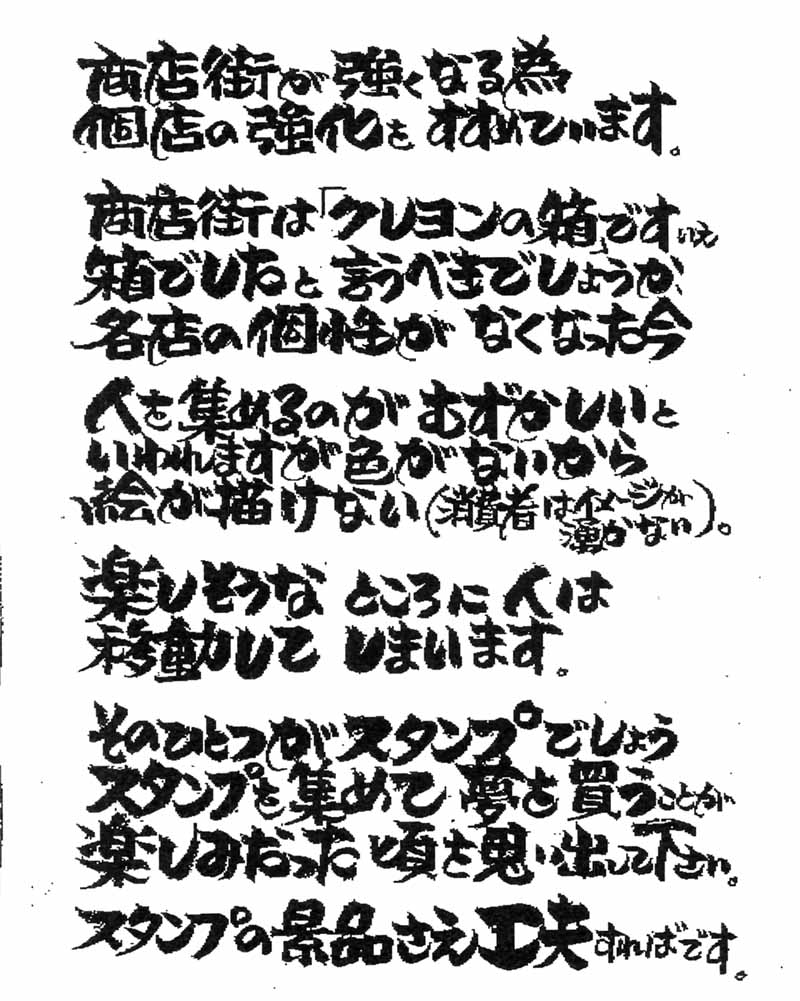 商店街が強くなる為
個店の強化をすすめています。
商店街は「クレヨンの箱」ですいえ
箱でしたと言うべきでしょうか、
各店の個性がなくなった今
人を集めるのがむずかしいと
いわれますが色がないから
絵が描けない(消費者はイメージが
湧かない)。
楽しそうなところに人は
移動してしまいます。
そのひとつがスタンプでしょう
スタンプを集めて夢を買うことが
楽しみだった頃を思い出して下さい。
スタンプの景品さえ工夫すればです。